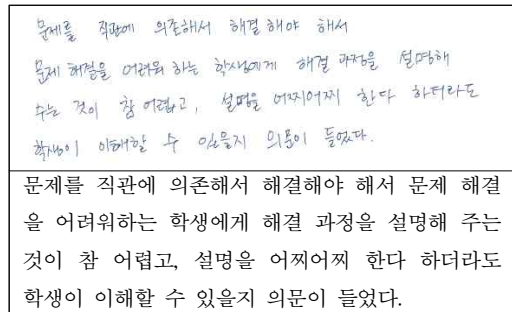 문제를 직관에 의존해서 해결해야 해서
문제 해결을 어려워 하는 학생에게 해결 과정을 설명해
주는 것이 참 어렵고, 설명을 어찌어찌 한다 하더라도
학생이 이해할 수 있을지 의문이 들었다.
문제를 직관에 의존해서 해결해야 해서 문제 해결
을 어려워하는 학생에게 해결 과정을 설명해 주는
것이 참 어렵고, 설명을 어찌어찌 한다 하더라도
학생이 이해할 수 있을지 의문이 들었다.